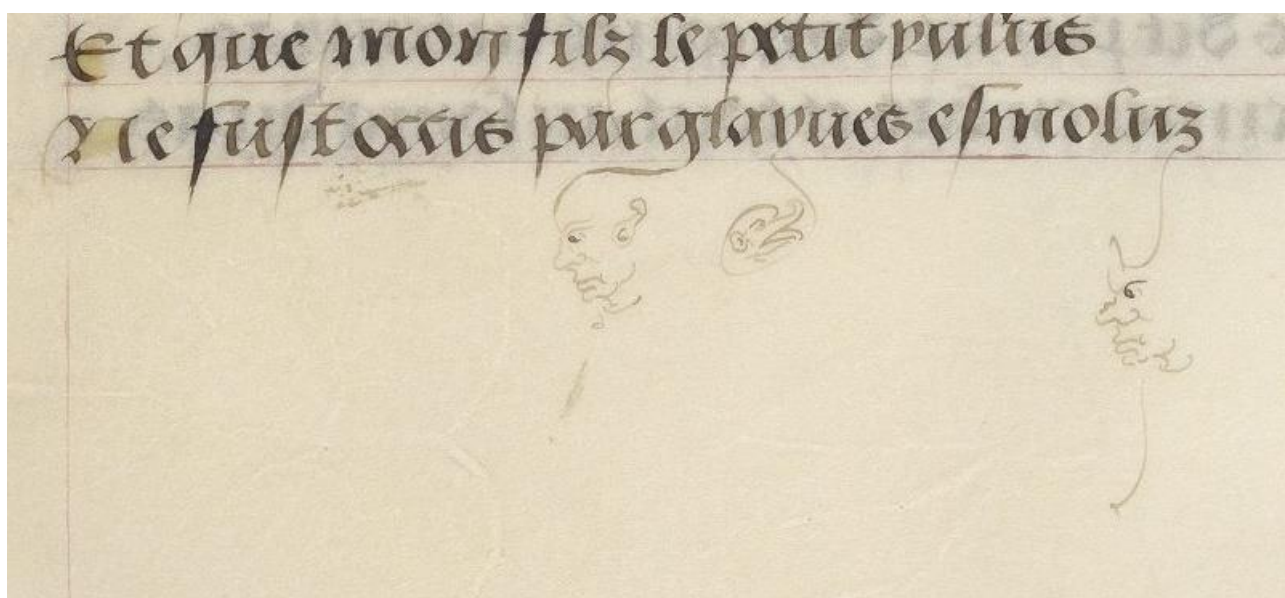 Et que mon filz le petit yulus
Ne fust occis par glayues esmoluz